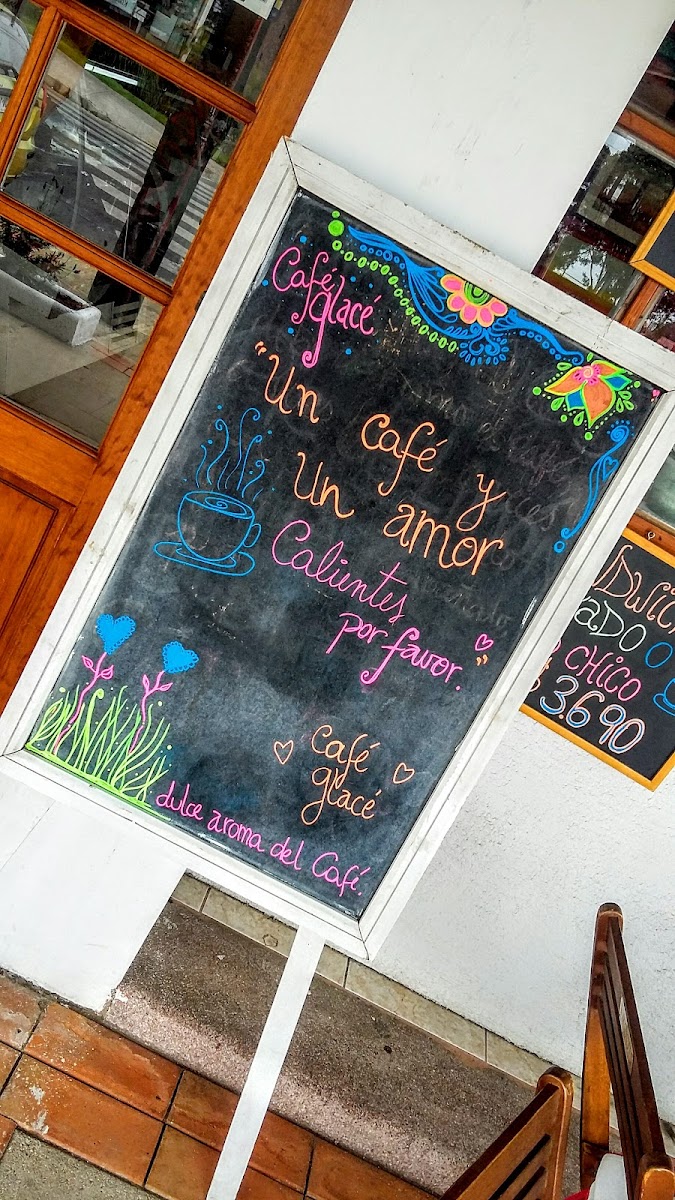 Café
glacé
"Un café y
Un amor
Calientes
por favor."
café
glacé
dulce aroma del Café.
CHICO
3.690